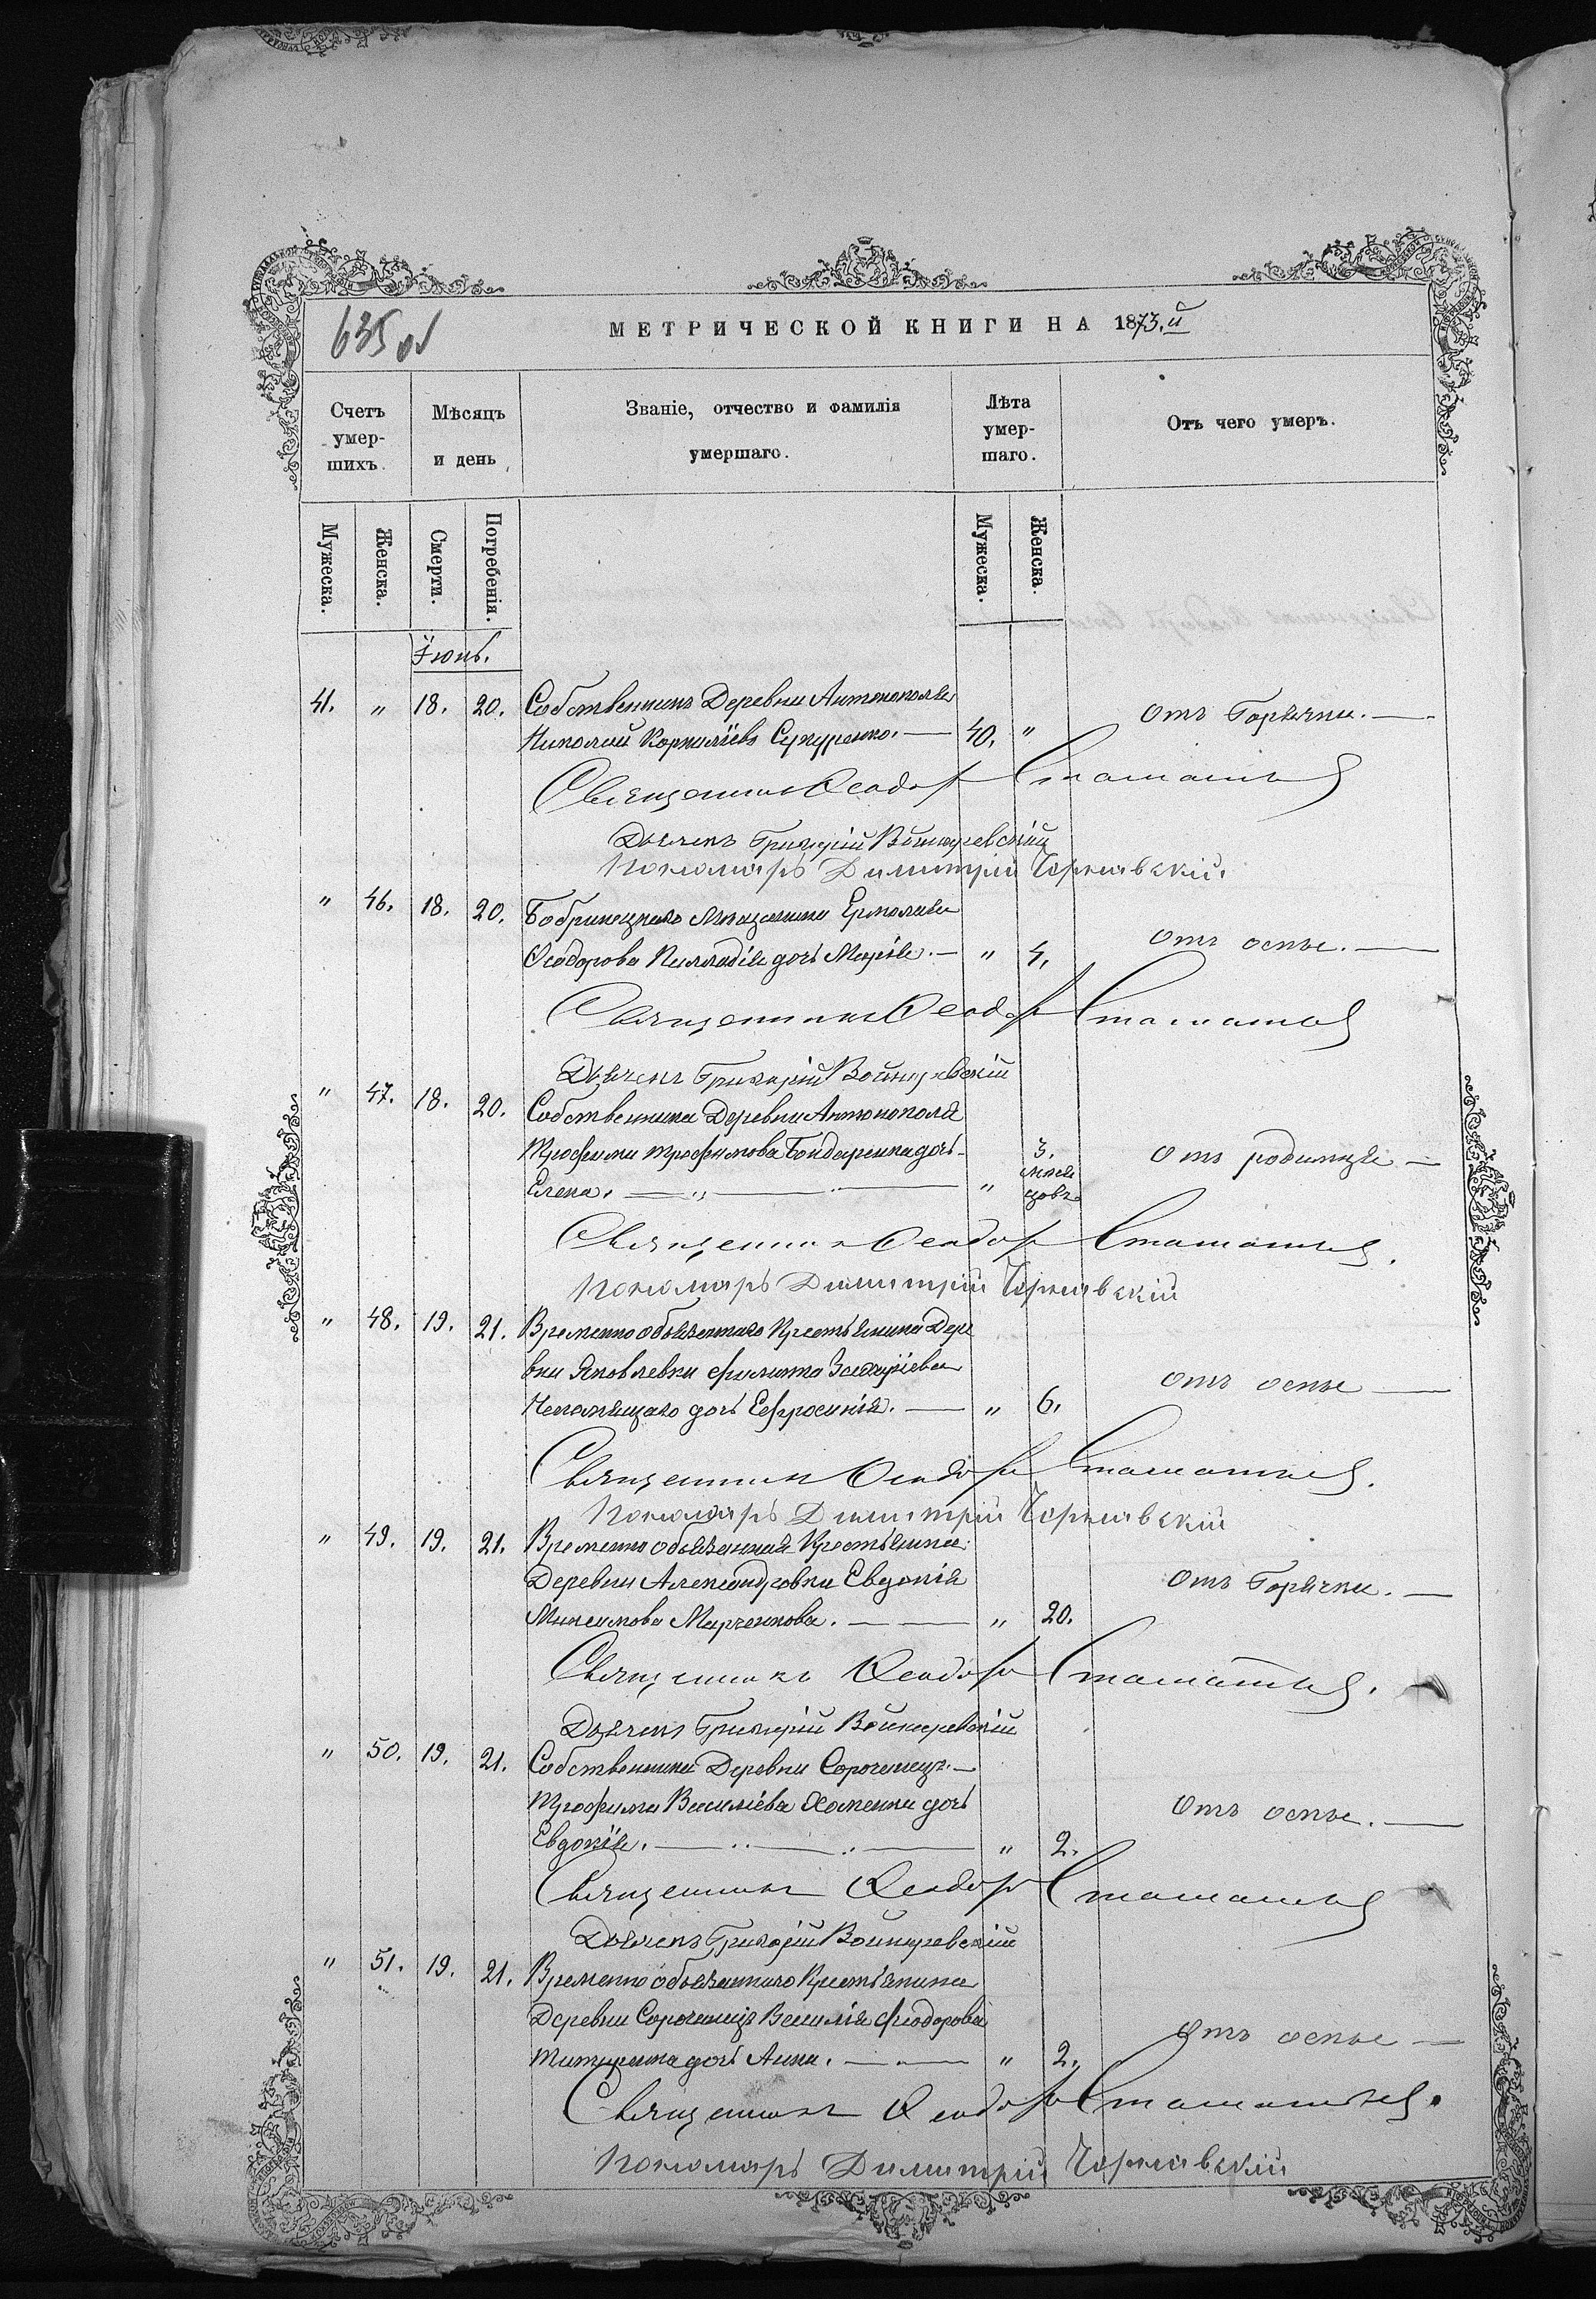 635 об
МЕТРИЧЕСКОЙ КНИГИ НА 1873.й
Счетъ умершихъ.
Мѣсяцъ и день
Званіе, отчество и фамилія умершаго.
Лѣта умершаго.
Отъ чего умеръ.
Мужеска.
Женска.
Смерти.
Погребенія.
Мужеска.
Женска.
Іюнь.
41. " 18. 20. Собственникъ Деревни Антонополя
Николай Корниліевъ 40. " Отъ Горячки.
Священникъ Ѳеодоръ Стаматьевъ
Дьячекъ Григорій Войнаревскій
Пономарь Димитрій Чернявскій.
" 46. 18. 20. Бобринецкаго мѣщанина Ермолая
Ѳеодорова дочь Марія. " 4. Отъ оспы.
Священникъ Ѳеодоръ Стаматьевъ
Дьячекъ Григорій Войнаревскій
" 47. 18. 20. Собственника Деревни Антонополя
Трофима Трофимова Бондаренка дочь
Елена. " 3. мѣся цовъ Отъ родимца
Священникъ Ѳеодоръ Стаматьевъ.
Пономарь Димитрій Чернявскій
" 48. 19. 21. Временнообязаннаго Крестьянина Дере
вни Яковлевки Филиппа Захаріева
Непомнящаго дочь Ефросинія. " 6. Отъ оспы
Священникъ Ѳеодоръ Стаматьевъ.
Пономарь Димитрій Чернявскій
" 49. 19. 21. Временнообязанная Крестьянка
Деревни Александровки Евдокія
Максимова Марченкова. " 20. Отъ Горячки.
Священникъ Ѳеодоръ Стаматьевъ.
Дьячекъ Григорій Войнаревскій
" 50. 19. 21. Собственника Деревни Сорочинецъ
Трофима Василіева Хоменка дочь
Евдокія. " 2. Отъ оспы.
Священникъ Ѳеодоръ Стаматьевъ
Дьячекъ Григорій Войнаревскій
" 51. 19. 21. Временнообязаннаго Крестьянина
Деревни Сорочинецъ Василія Феодорова
Титаренка дочь Анна. " 2. Отъ оспы
Священникъ Ѳеодоръ Стаматьевъ.
Пономарь Димитрій Чернявскій